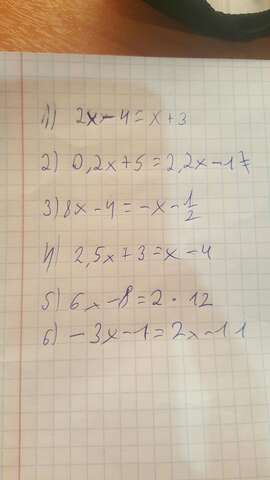 1) 2x-4=x+3
2) 0,2x+5=2,2x-17
3) 8x-4=-x-1/2
4) 2,5x+3=x-4
5) 6x-8=2·12
6) -3x-1=2x-11